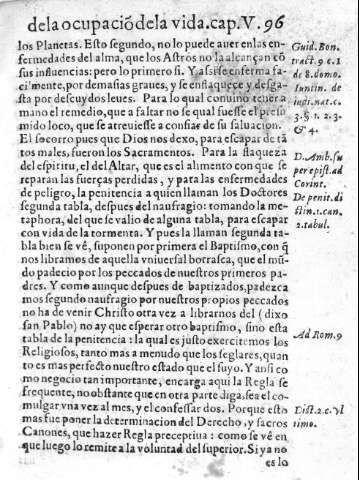 de la ocupació de la vida. cap. V. 96
los Planetas. Esto segundo, no lo puede auer en las en-
fermedades del alma, que los Astros no la alcançan cõ
sus influencias: pero lo primero si. Y assi se enferma fa-
ci'mente, por demasias graues, y se enflaquece y desga-
sta por descuydos leues. Para lo qual conuino tener a
mano el remedio, que a faltar no se qual fuesse el presu
mido loco, que se atreuiesse a confiar de su saluacion.
El socorro pues que Dios nos dexo, para escapar de tã
tos males, fueron los Sacramentos. Para la flaqueza
del espiritu, el del Altar, que es el alimento con que se
reparan las fuerças perdidas, y para las enfermedades
de peligro, la penitencia a quien llaman los Doctores
segunda tabla, despues del naufragio: tomando la me-
taphora, del que se valio de alguna tabla, para escapar
con vida de la tormenta. Y pues la llaman segunda ta-
bla bien se vé, suponen por primera el Baptismo, con q̃
nos libramos de aquella vniuersal borrasca, que el mũ
do padecio por los peccados de nuestros primeros pa-
dres. Y como aunque despues de baptizados, padezca
mos segundo naufragio por nuestros propios peccados
no ha de venir Christo otra vez a librarnos del (dixo
san Pablo) no ay que esperar otro baptismo, sino esta
tabla de la penitencia: la qual es justo exercitemos los
Religiosos, tanto mas a menudo que los seglares, quan
to es mas perfecto nuestro estado que el suyo. Y ansi co
mo negocio tan importante, encarga aqui la Regla se
frequente, no obstante que en otra parte diga, sea el co-
mulgar vna vez al mes, y el confessar dos. Porque esto
mas fue poner la determinacion del Derecho, y sacros
Canones, que hazer Regla preceptiua: como se vé en
que luego lo remite a la voluntad del superior. Si ya no
es lo
Guid. Bon.
tract. 9 c. 1
de 8. domo.
Iuntin. de
inft. nat. c.
3. §. 1. 2. 3.
& 4.
D. Amb. su
per epist. ad
Corint.
De penit. di
stin. 1. can.
2. tabul.
Ad Rom. 9
Dist. 2. c. vl
timo.